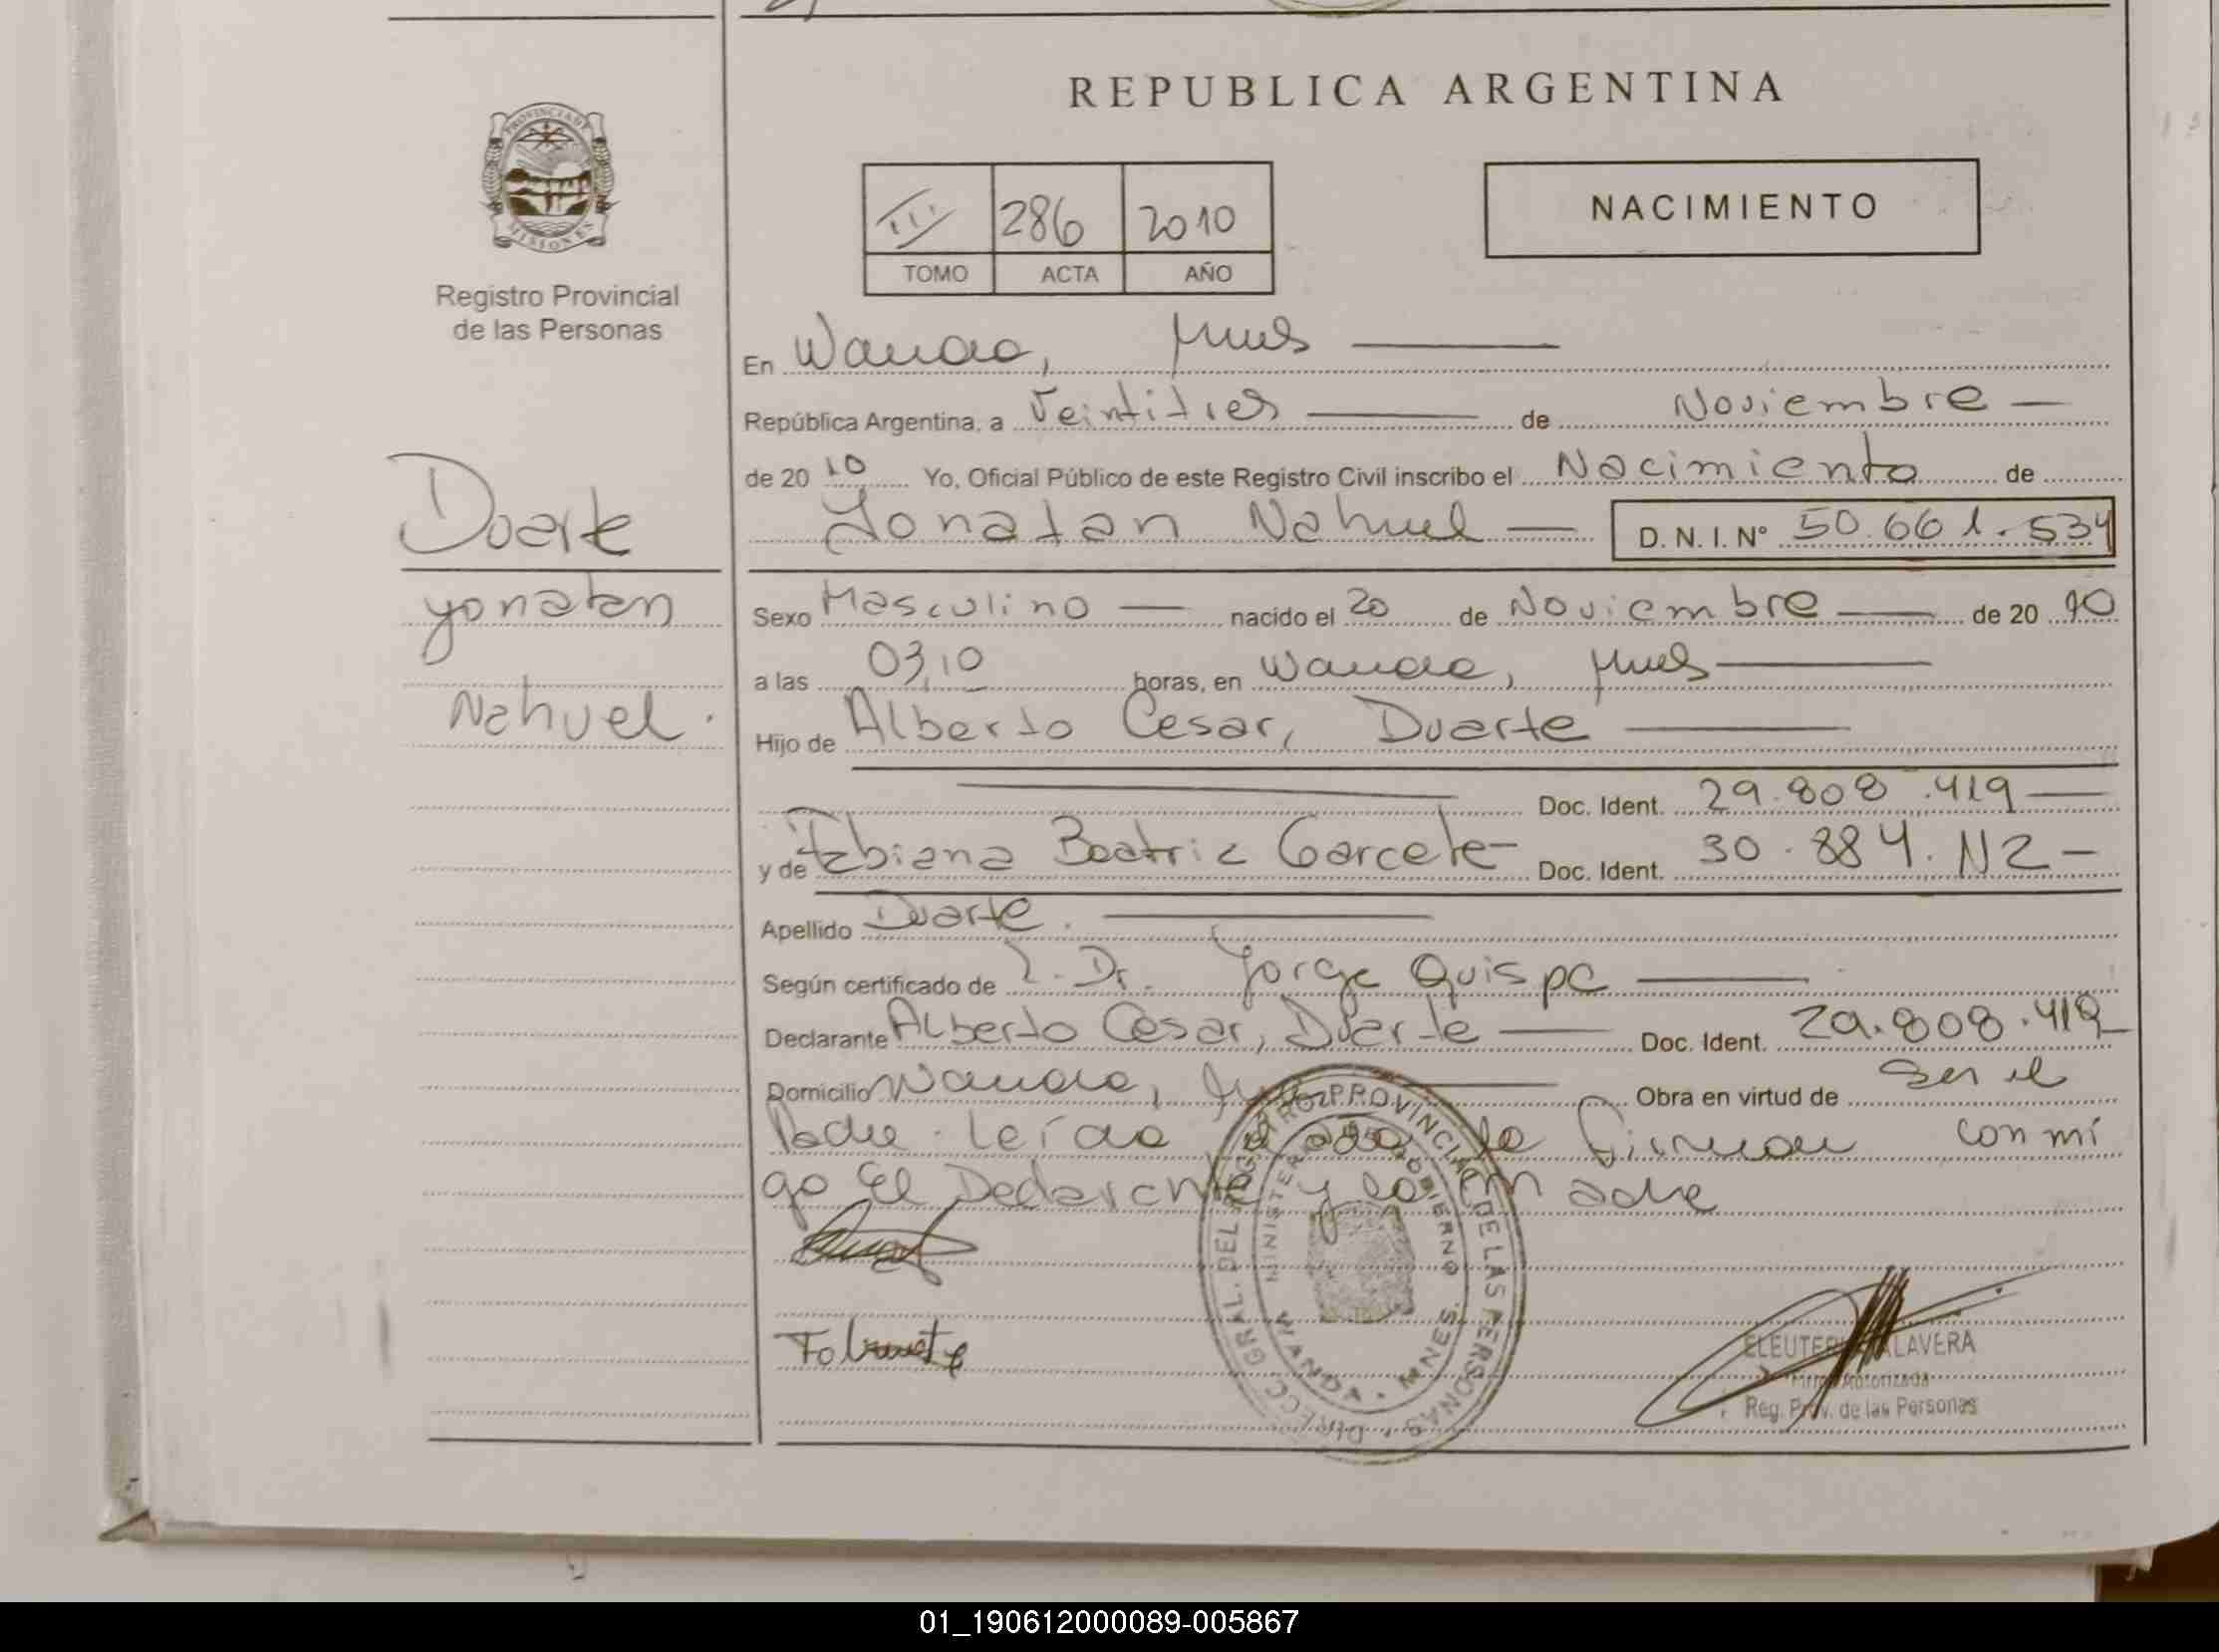 REPUBLICA ARGENTINA
PROVINCIA DE
MISIONES
Registro Provincial
de las Personas
III 286 2010
TOMO ACTA AÑO
NACIMIENTO
En Wanda, Mnes
República Argentina, a Veintitres de Noviembre
de 20 10 Yo, Oficial Público de este Registro Civil inscribo el Nacimiento de
Yonatan Nahuel D. N. I. Nº 50.661.534
Duarte
Yonatan
Nahuel.
Sexo Masculino nacido el 20 de Noviembre de 20 10
a las 03,10 horas, en Wanda, Mnes
Hijo de Alberto Cesar, Duarte
Doc. Ident. 29.808.419
y de Fabiana Beatriz Garcete Doc. Ident. 30.884.112
Apellido Duarte.
Según certificado de Dr. Jorge Quispe
Declarante Alberto Cesar, Duarte Doc. Ident. 29.808.419
Domicilio Wanda, Obra en virtud de Ser el
Padre. Leída el acta la Firman conmi
go El Declarante y la Madre
DIRECC. GRAL. DEL REGISTRO PROVINCIAL DE LAS PERSONAS
MINISTERIO GOBIERNO
WANDA - MNES.
Firma Autorizada
Reg. Prov. de las Personas
01_190612000089-005867